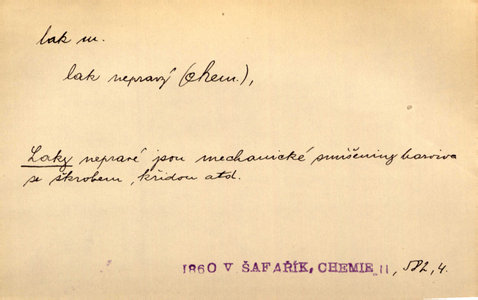 lak m.
lak nepravý (chem.),
Laky nepravé jsou mechanické smíšeniny barviva
se škrobem, křídou atd.
1860 V ŠAFAŘÍK, CHEMIE II, 582, 4.